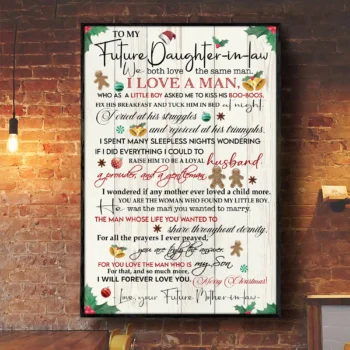 TO MY
Future Daughter-in-law
We both love the same man.
I LOVE A MAN,
WHO AS A LITTLE BOY ASKED ME TO KISS HIS BOO-BOOS,
FIX HIS BREAKFAST AND TUCK HIM IN BED at night.
I cried at his struggles
and rejoiced at his triumphs.
I SPENT MANY SLEEPLESS NIGHTS WONDERING
IF I DID EVERYTHING I COULD TO
RAISE HIM TO BE A LOYAL husband,
a provider, and a gentleman.
I wondered if any mother ever loved a child more.
YOU ARE THE WOMAN WHO FOUND MY LITTLE BOY.
He was the man you wanted to marry.
THE MAN WHOSE LIFE YOU WANTED TO
share throughout eternity.
For all the prayers I ever prayed,
you are truly the answer.
FOR YOU LOVE THE MAN WHO IS my Son.
For that, and so much more,
I WILL FOREVER LOVE YOU. Merry Christmas!
Love, your Future Mother-in-law